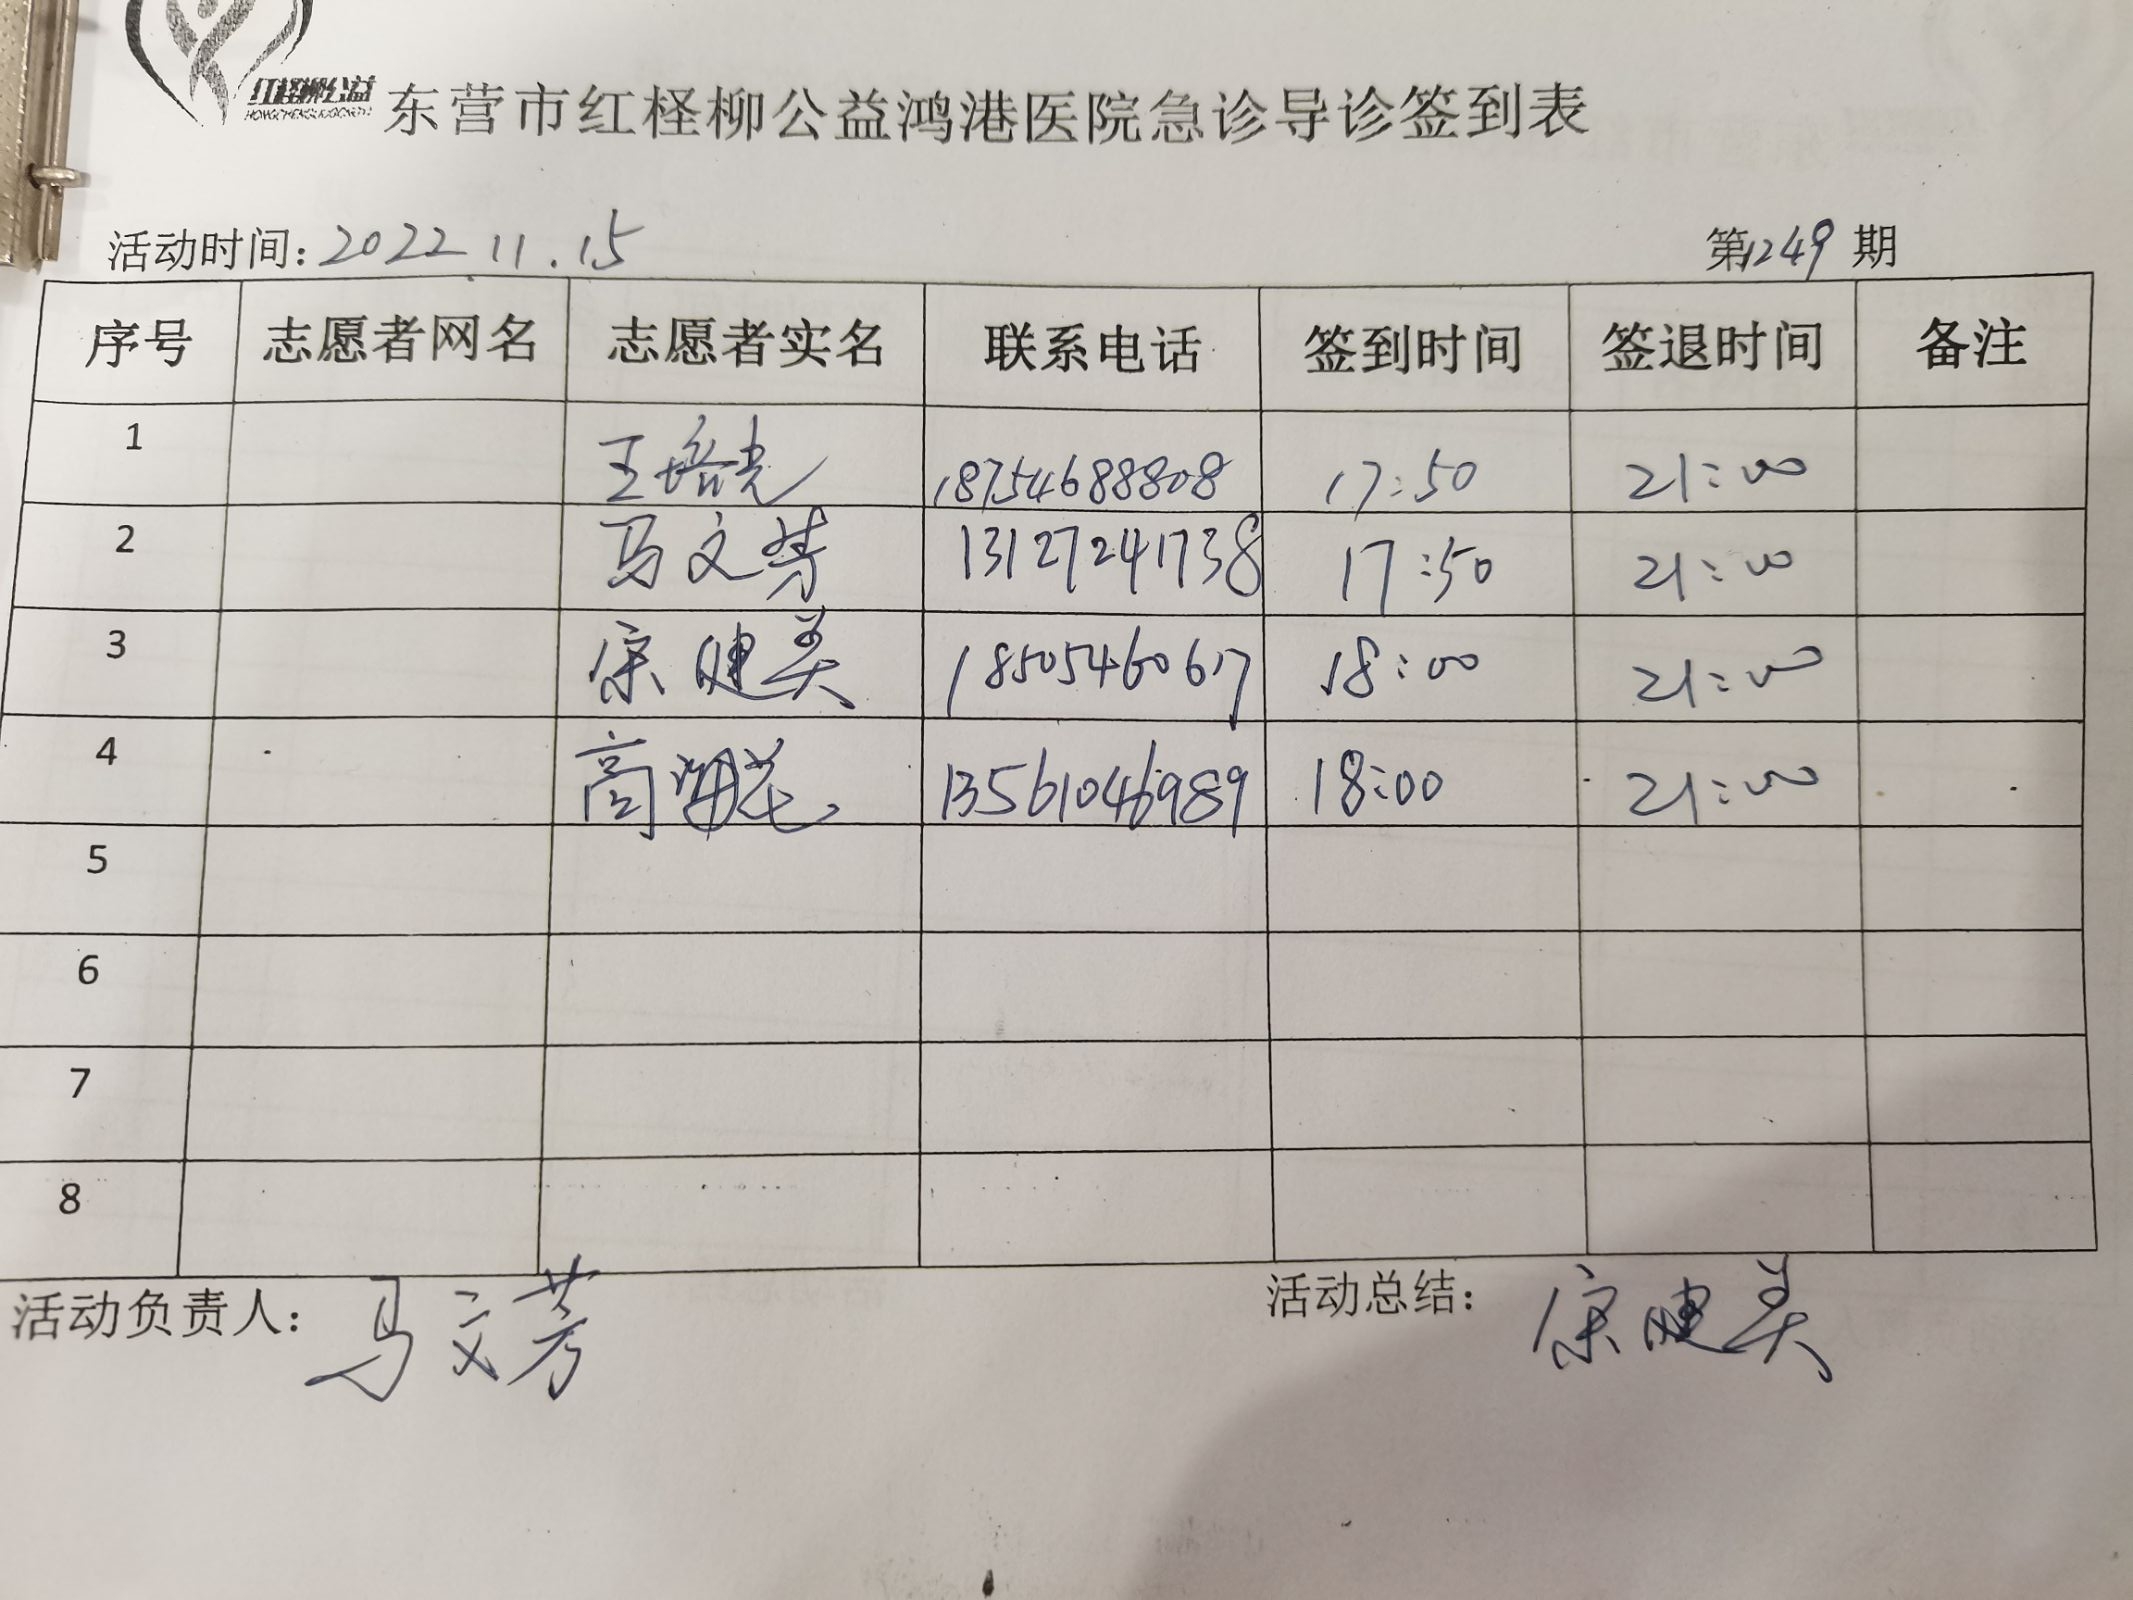 红柽柳公益
东营市红柽柳公益鸿港医院急诊导诊签到表
活动时间: 2022.11.15 第1249期
序号 志愿者网名 志愿者实名 联系电话 签到时间 签退时间 备注
1 王培光 18754688808 17:50 21:00
2 马文芳 13127241738 17:50 21:00
3 宋健美 18505460617 18:00 21:00
4 高海花 13561046989 18:00 21:00
5
6
7
8
活动负责人: 马文芳 活动总结: 宋健美